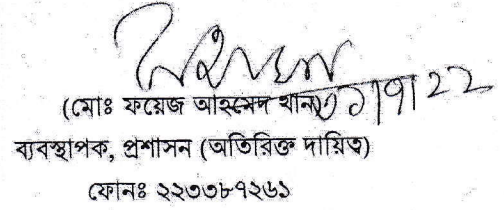 (মোঃ ফয়েজ আহমেদ খান)
ব্যবস্থাপক, প্রশাসন (অতিরিক্ত দায়িত্ব)
ফোনঃ ২২৩৩৮৭২৬১